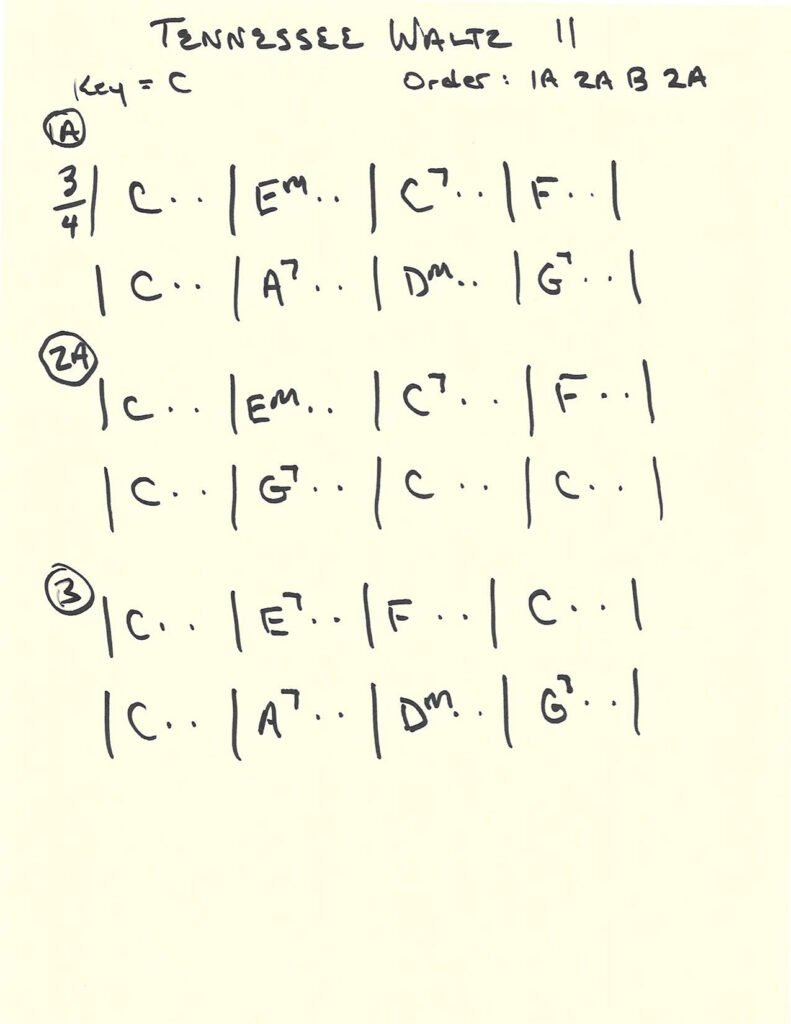 TENNESSEE WALTZ II
Key = C Order: 1A 2A B 2A
1A
3/4 | C . . | Em . . | C7 . . | F . . |
| C . . | A7 . . | Dm . . | G7 . . |
2A
| C . . | Em . . | C7 . . | F . . |
| C . . | G7 . . | C . . | C . . |
B
| C . . | E7 . . | F . . | C . . |
| C . . | A7 . . | Dm . . | G7 . . |